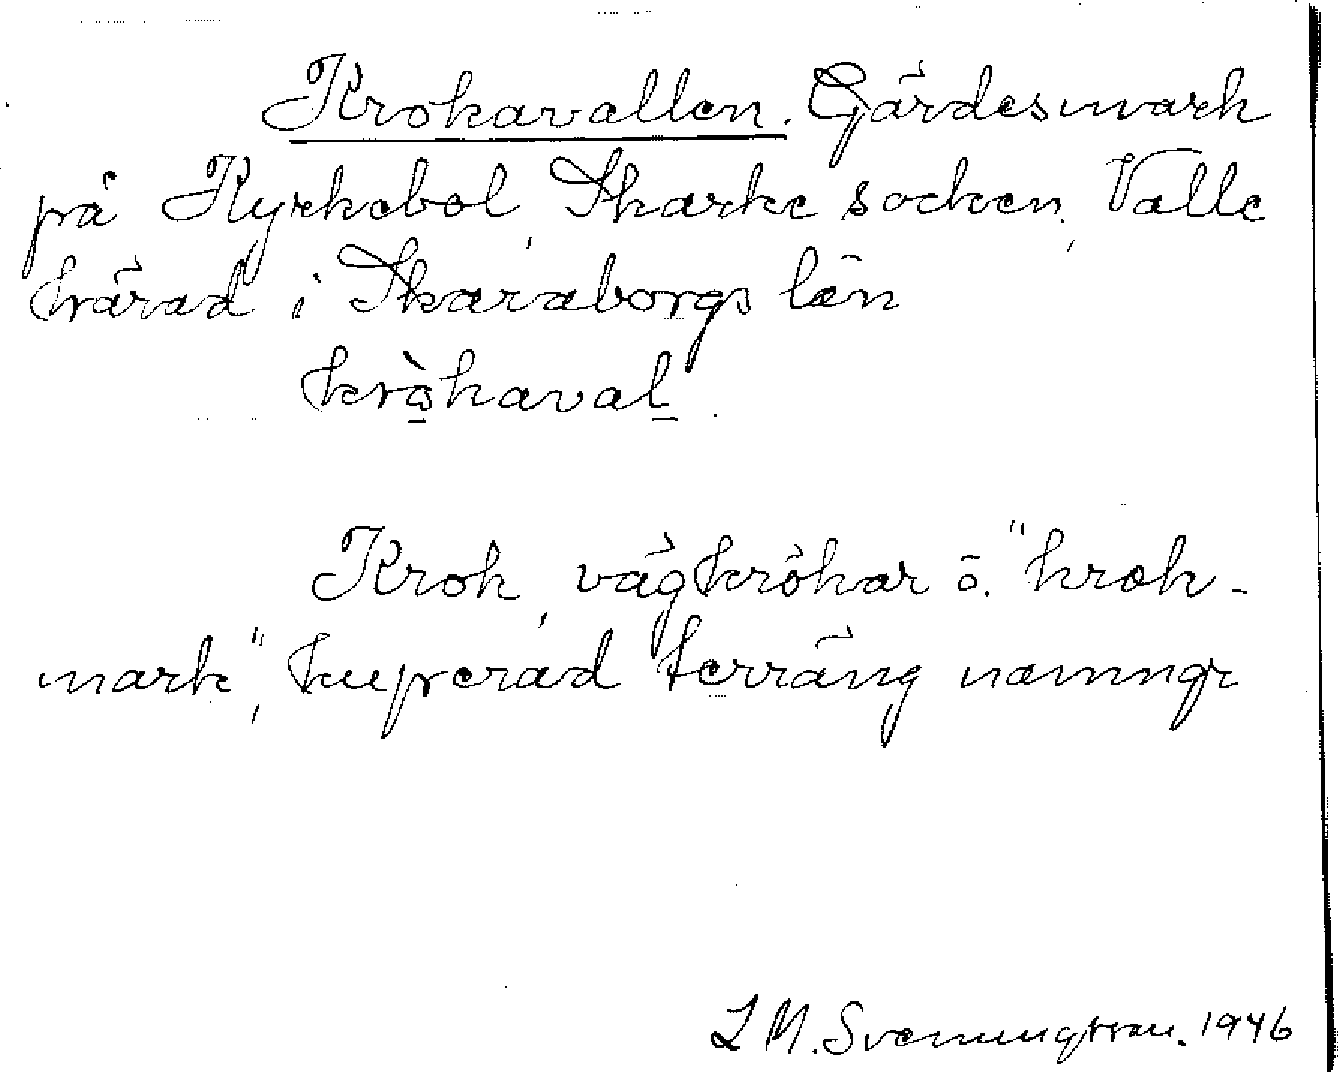 Krokavallen. Gärdesmark
på Kyrkebol, Skarke socken, Valle
härad i Skaraborgs län
kròkaval
Krok, vägkrökar ö. "krok-
mark", kuperad terräng namngr
L M. Svenungsson. 1946